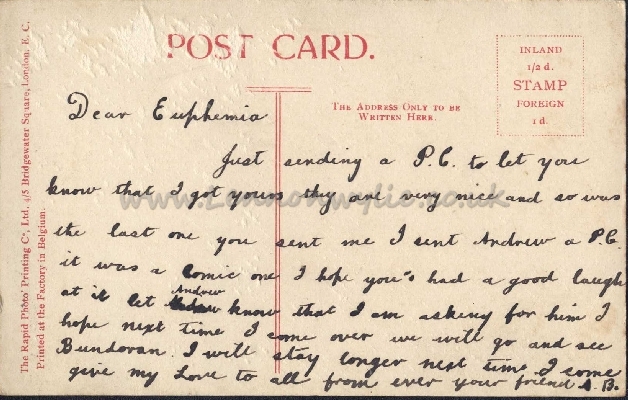 POST CARD.
INLAND
1/2 d.
STAMP
FOREIGN
1 d.
THE ADDRESS ONLY TO BE
WRITTEN HERE.
The Rapid Photo Printing Co, Ltd. 4/5 Bridgewater Square, London, E. C.
Printed at the Factory in Belgium.
Dear Euphemia
Just sending a P.C. to let you
know that I got yours they are very nice and so was
the last one you sent me I sent Andrew a P.C.
it was a Comic one I hope you's had a good laugh
at it let Andrew know that I am asking for him I
hope next time I come over we will go and see
Bundoran. I will stay longer next time I come
give my Love to all from ever your friend A. B.